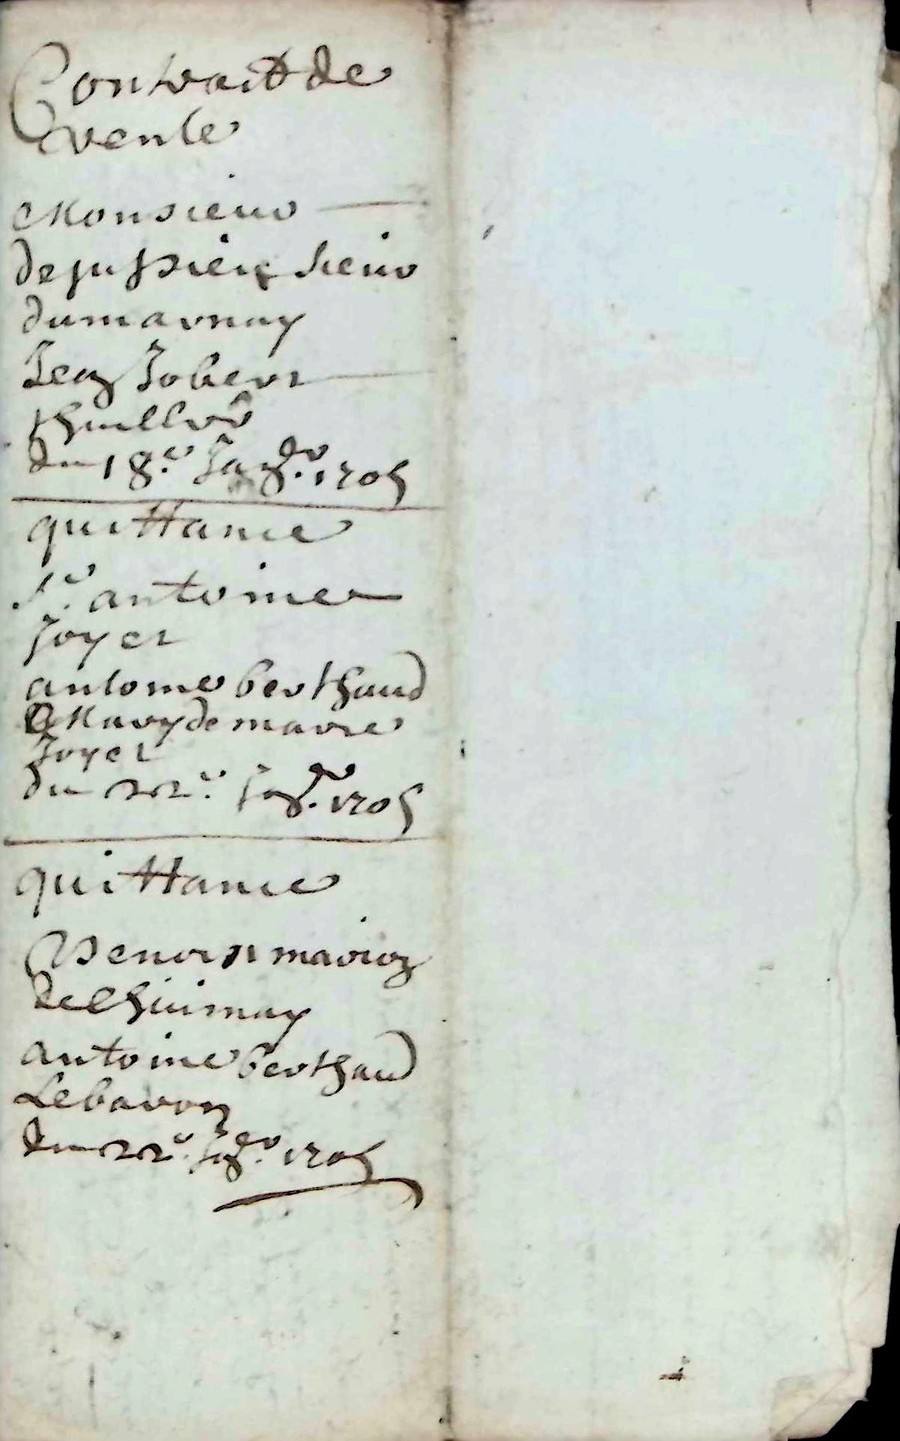 Contraict de
vente
Monsieur
de Jussieu sieur
du marnay
Jean Jobert
du 18.e Jan.er 1705
quittance
S.r antoine
Joyet
antoine berthaud
mary de marie
Joyet
du 22.e Jan.er 1705
quittance
Benoist marion
de Chiimay
antoine berthaud
Lebaron
du 22.e Jan.er 1705